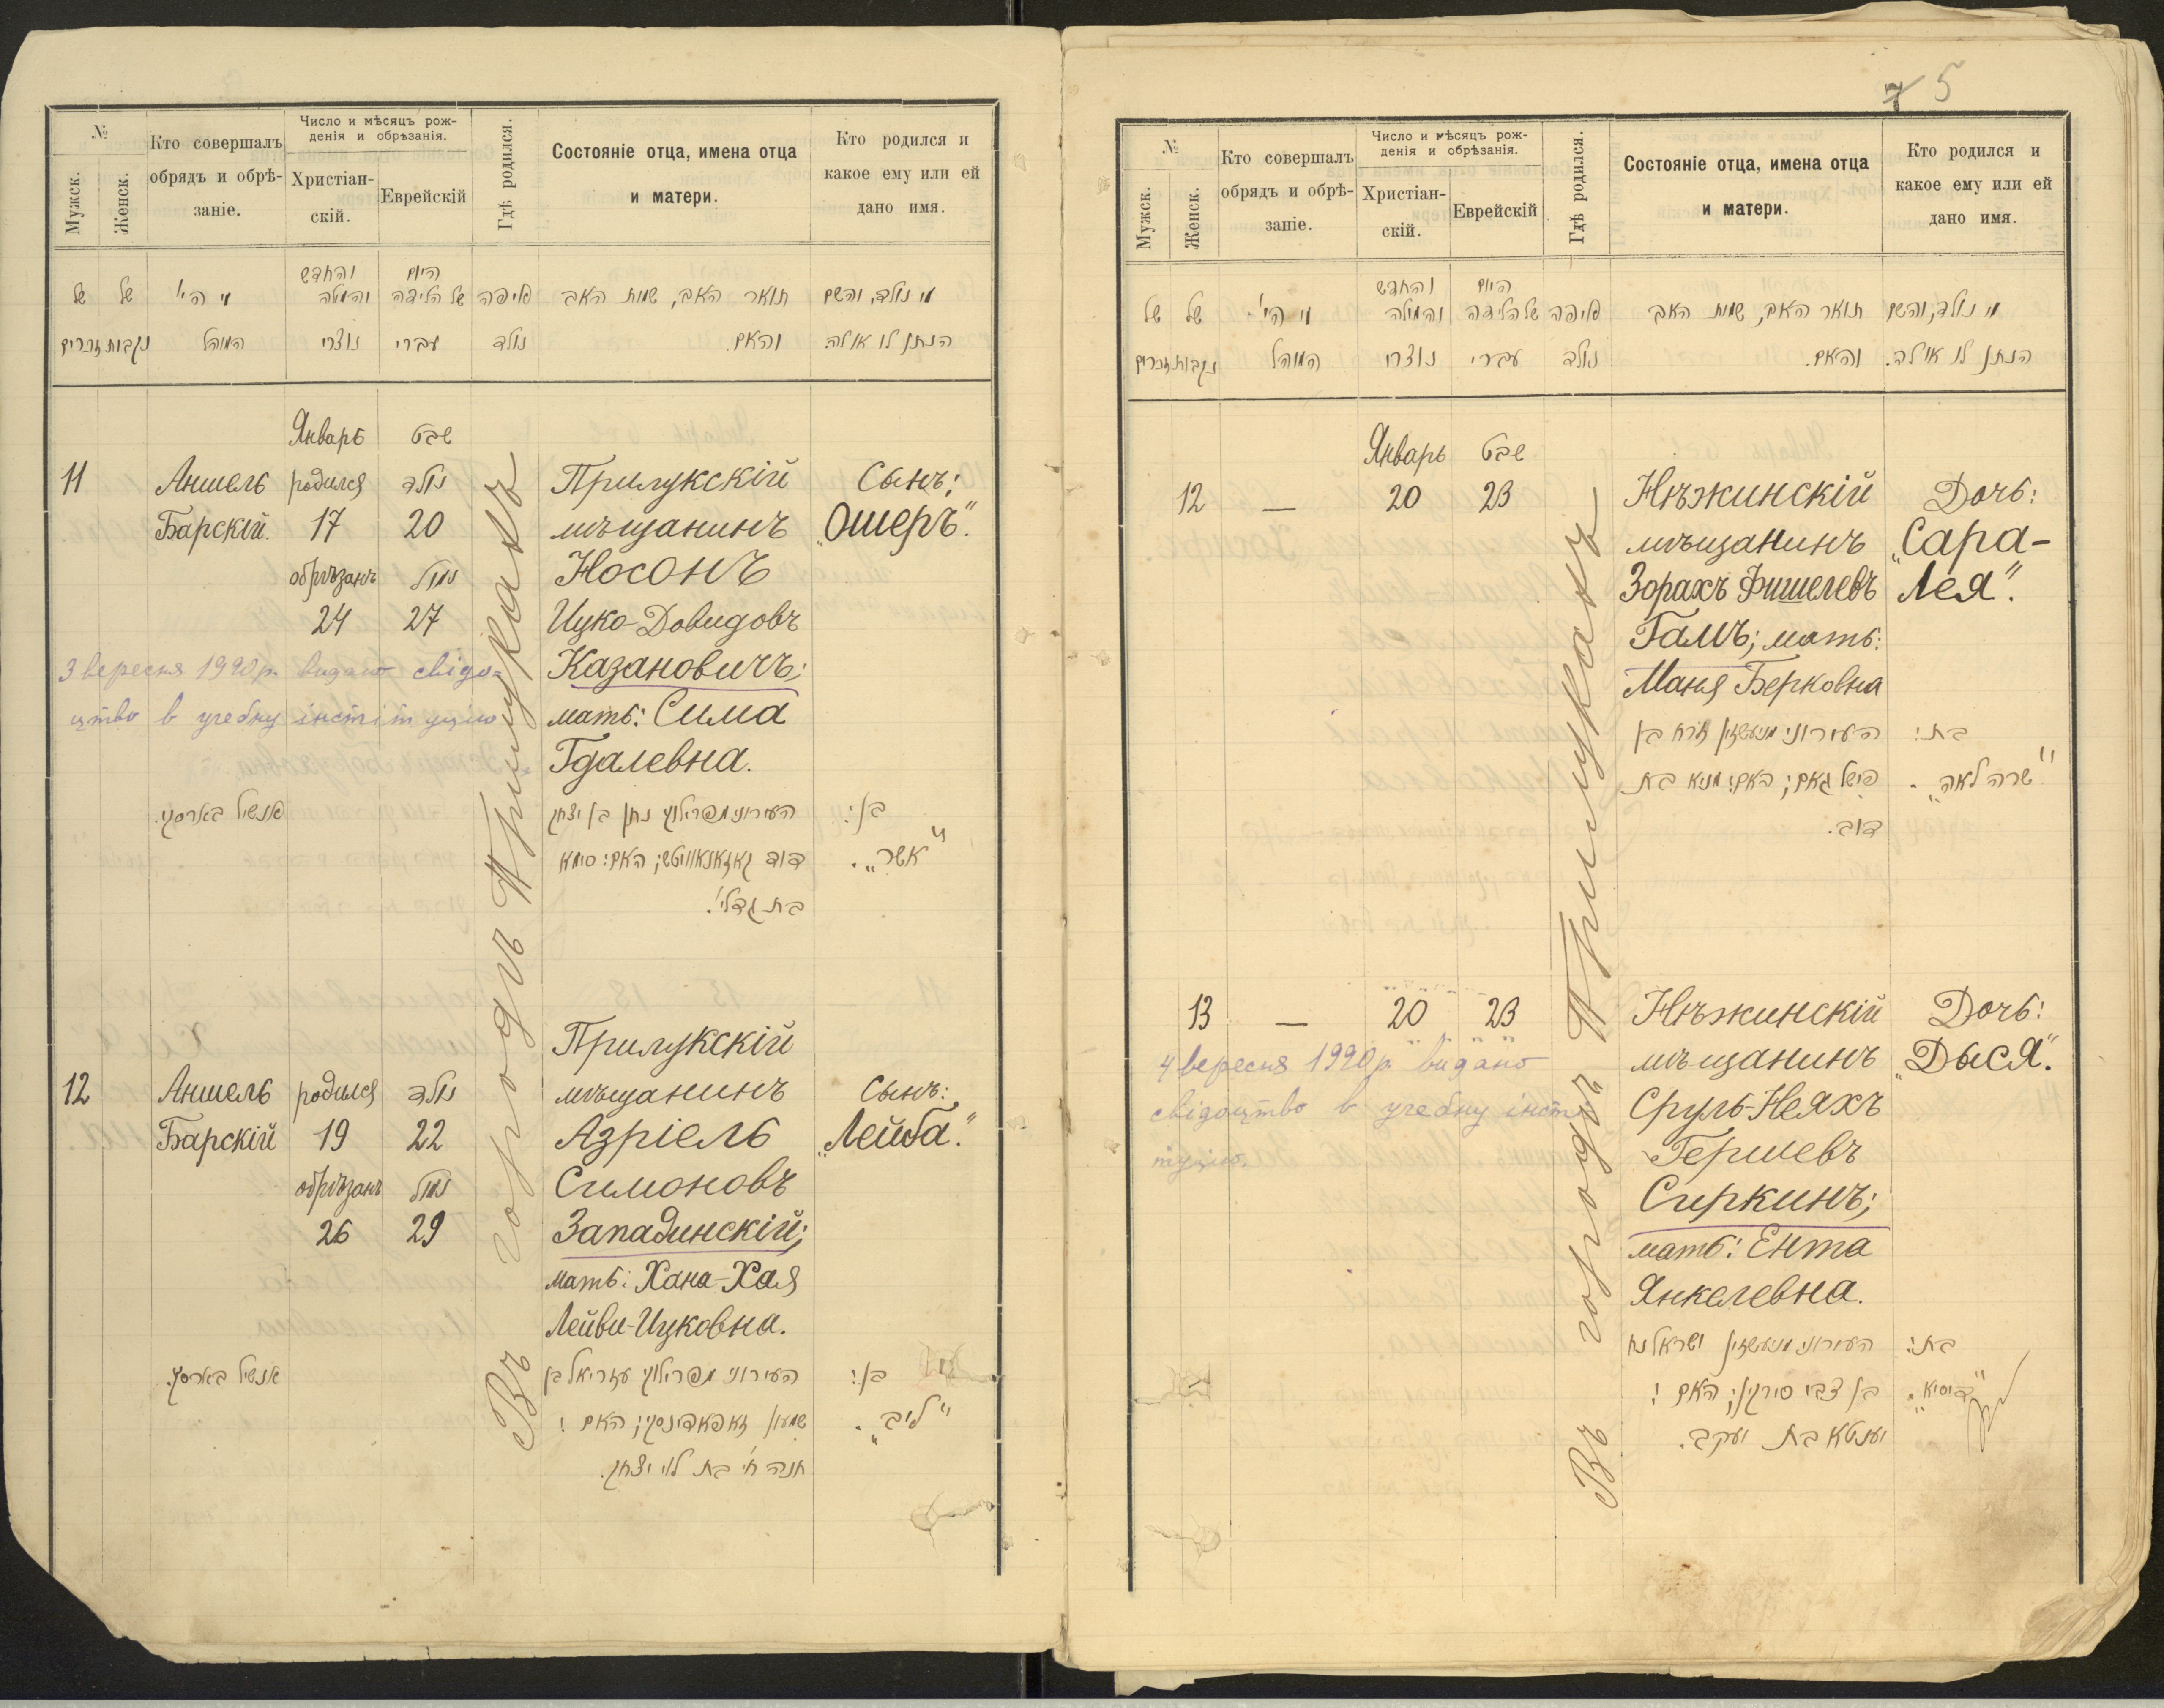 №
Мужск.
Женск.
Кто совершалъ
обрядъ и обрѣ-
заніе.
Число и мѣсяцъ рож-
денія и обрѣзанія.
Христіан-
скій.
Еврейскій
Гдѣ родился.
Состояніе отца, имена отца
и матери.
Кто родился и
какое ему или ей
дано имя.
של
זכרים
של
נקבות
מי הי'
המוהל
והחדש
והמילה
נוצרי
היום
של הלידה
עברי
איפה
נולד
תואר האב, שמות האב
והאם.
מי נולד, והשם
הנתן לו או לה.
Январь
שבט
11
Аншель
Барскій.
родился
17
обрѣзанъ
24
נולד
20
נמול
27
Прилукскій
мѣщанинъ
Носонъ
Ицко-Довидовъ
Казановичъ;
мать: Сима
Гдалевна.
Сынъ:
„Ошеръ“.
3 вересня 1990 р. видано свідо-
цтво в учебну інституцію
אנשיל בארסקי.
העירוני מפרילוקי נתן בן יצחק
דוד קאזאנאוויטש; האם: סימא
בת גדלי'.
בן:
"אשר„.
12
Аншель
Барскій
родился
19
обрѣзанъ
26
נולד
22
נמול
29
Прилукскій
мѣщанинъ
Азріель
Симоновъ
Западинскій;
мать: Хана-Хая
Лейви-Ицковна.
Сынъ:
„Лейба“.
אנשיל בארסקי.
העירוני מפרילוקי עזריאל בן
שמעון זאפאדינסקי; האם:
חנה חי' בת לוי יצחק.
בן:
"ליב„.
Въ городѣ Прилукахъ
7 5
№
Мужск.
Женск.
Кто совершалъ
обрядъ и обрѣ-
заніе.
Число и мѣсяцъ рож-
денія и обрѣзанія.
Христіан-
скій.
Еврейскій
Гдѣ родился.
Состояніе отца, имена отца
и матери.
Кто родился и
какое ему или ей
дано имя.
של
זכרים
של
נקבות
מי הי'
המוהל
והחדש
והמילה
נוצרי
היום
של הלידה
עברי
איפה
נולד
תואר האב, שמות האב
והאם.
מי נולד, והשם
הנתן לו או לה.
Январь
שבט
12
—
20
23
Нѣжинскій
мѣщанинъ
Зорахъ Фишелевъ
Гамъ; мать:
Маня Берковна
Дочь:
„Сара-
Лея“.
העירוני מניעשזין זרח בן
פישל גאם; האם: מניא בת
דוב.
בת:
"שרה לאה„.
13
—
20
23
Нѣжинскій
мѣщанинъ
Сруль-Неяхъ
Гершевъ
Сиркинъ;
мать: Ента
Янкелевна.
Дочь:
„Дыся“.
4 вересня 1990 р. видано
свідоцтво в учебну інсти
туцію.
העירוני מניעשזין ישראל נח
בן צבי סירקין; האם:
יענטא בת יעקב.
בת:
"דיסיא„.
Въ городѣ Прилукахъ